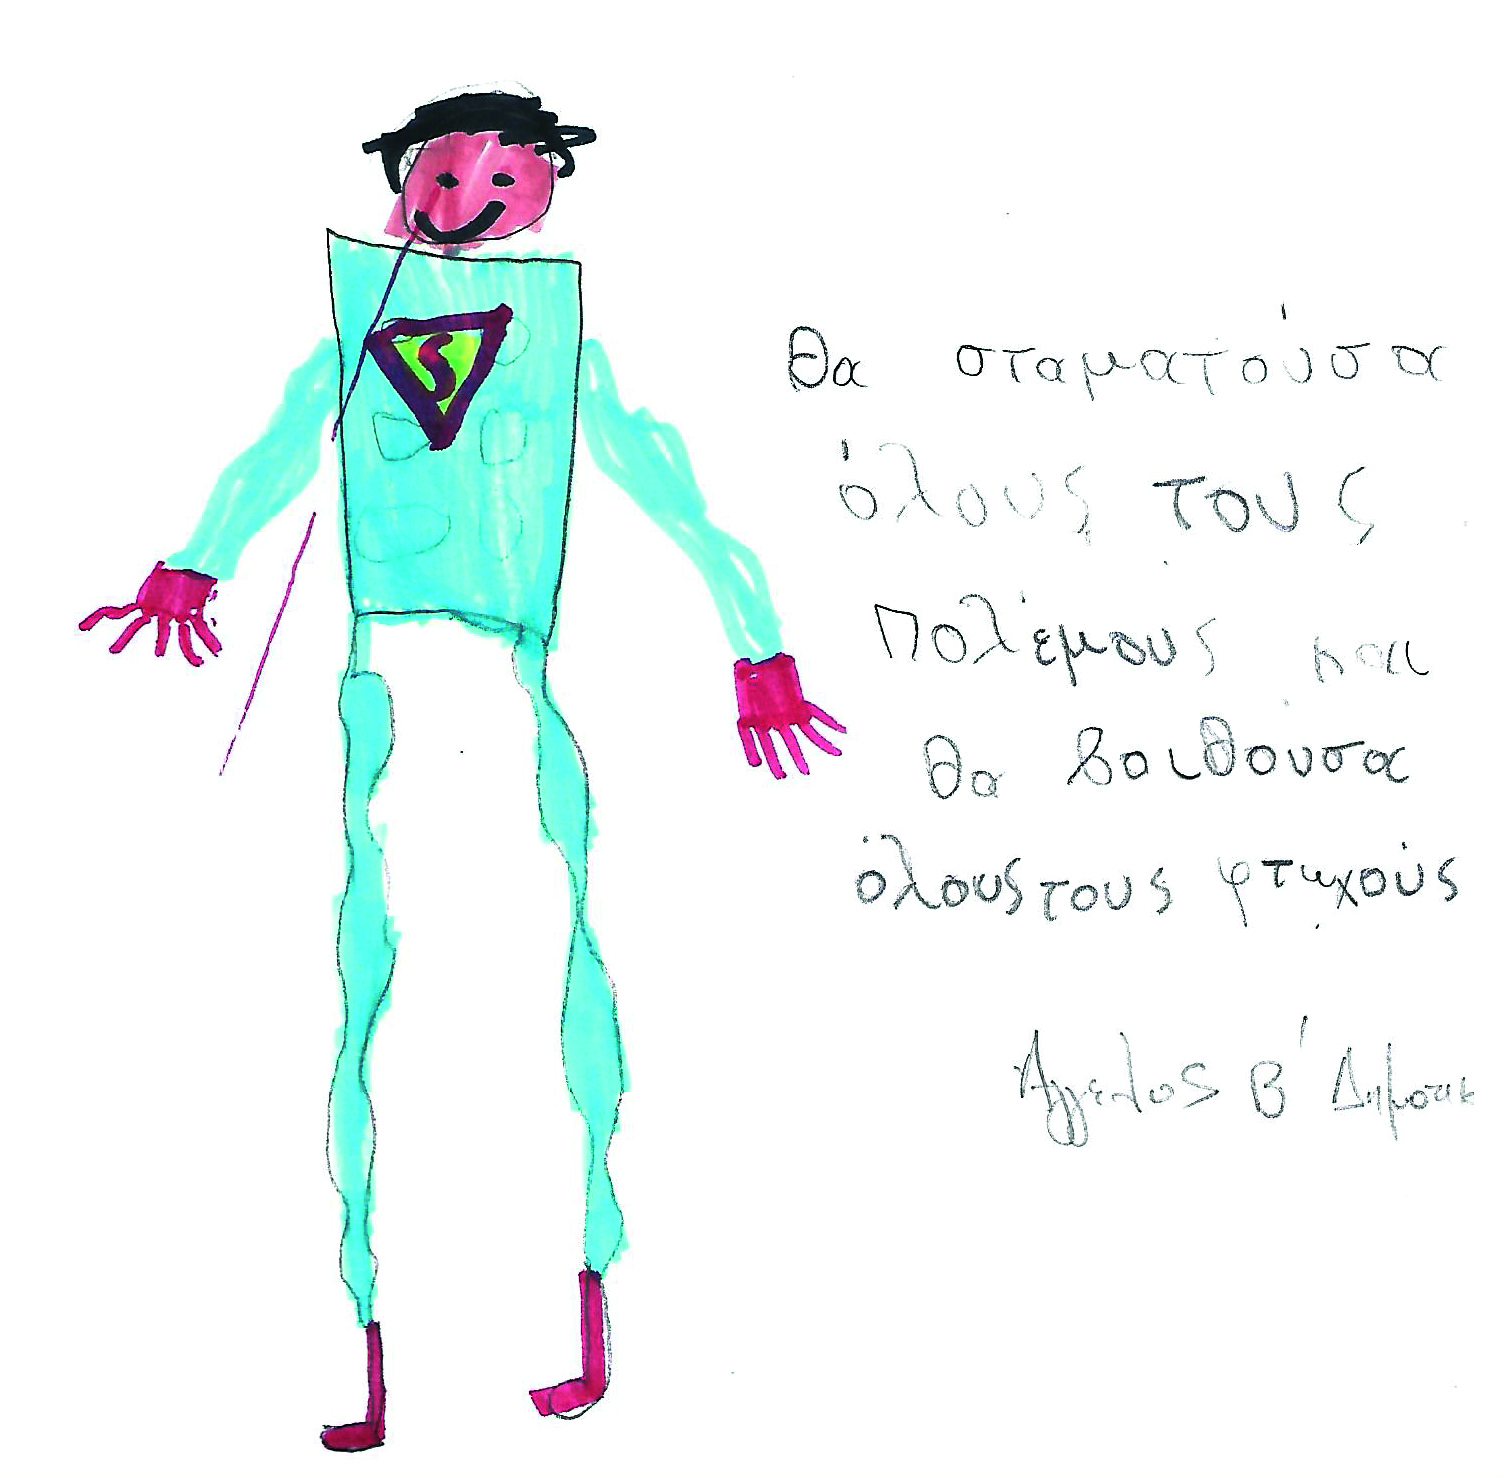 S
Θα σταματούσα
όλους τους
Πολέμους και
θα βοιθούσα
όλους τους φτωχούς
Άγγελος Β' Δημοτικ